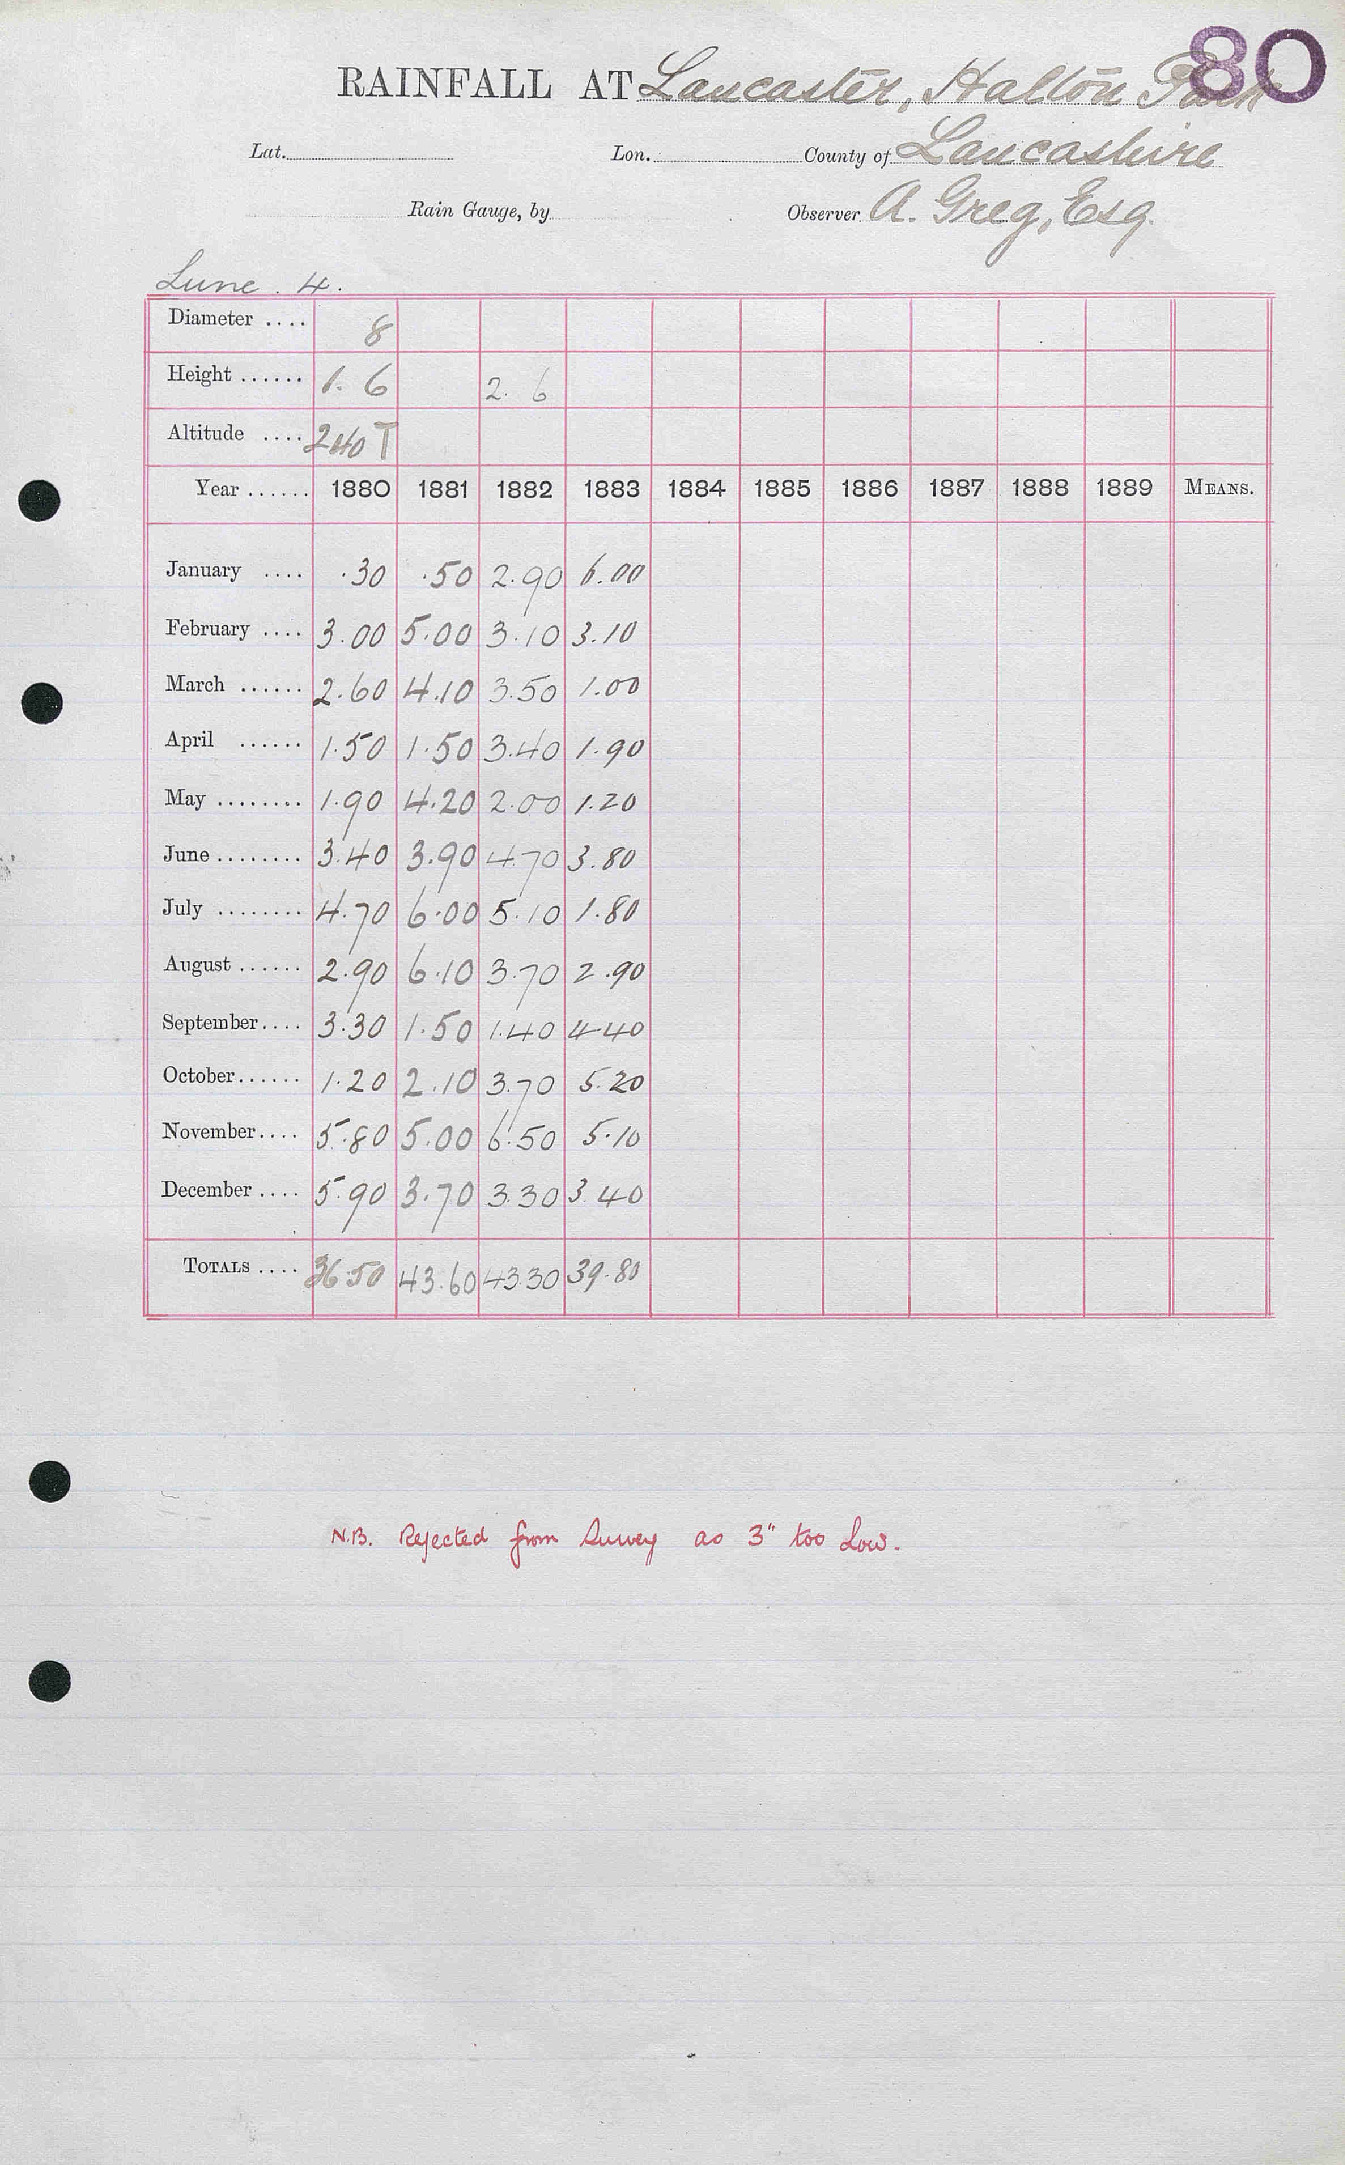 80
RAINFALL AT Lancaster, Halton Park
Lat. Lon. County of Lancashire
Rain Gauge, by Observer A. Greg, Esq.
Lune. 4.
Diameter .... 8
Height ...... 1. 6 2. 6
Altitude .... 240 T
Year ...... 1880 1881 1882 1883 1884 1885 1886 1887 1888 1889 MEANS.
January .... .30 .50 2.90 6.00
February .... 3.00 5.00 3.10 3.10
March ...... 2.60 4.10 3.50 1.00
April ...... 1.50 1.50 3.40 1.90
May ........ 1.90 4.20 2.00 1.20
June ........ 3.40 3.90 4.70 3.80
July ........ 4.70 6.00 5.10 1.80
August ...... 2.90 6.10 3.70 2.90
September .... 3.30 1.50 1.40 4.40
October ...... 1.20 2.10 3.70 5.20
November .... 5.80 5.00 6.50 5.10
December .... 5.90 3.70 3.30 3.40
TOTALS .... 36.50 43.60 43.30 39.80
N.B. Rejected from Survey as 3" too Low.